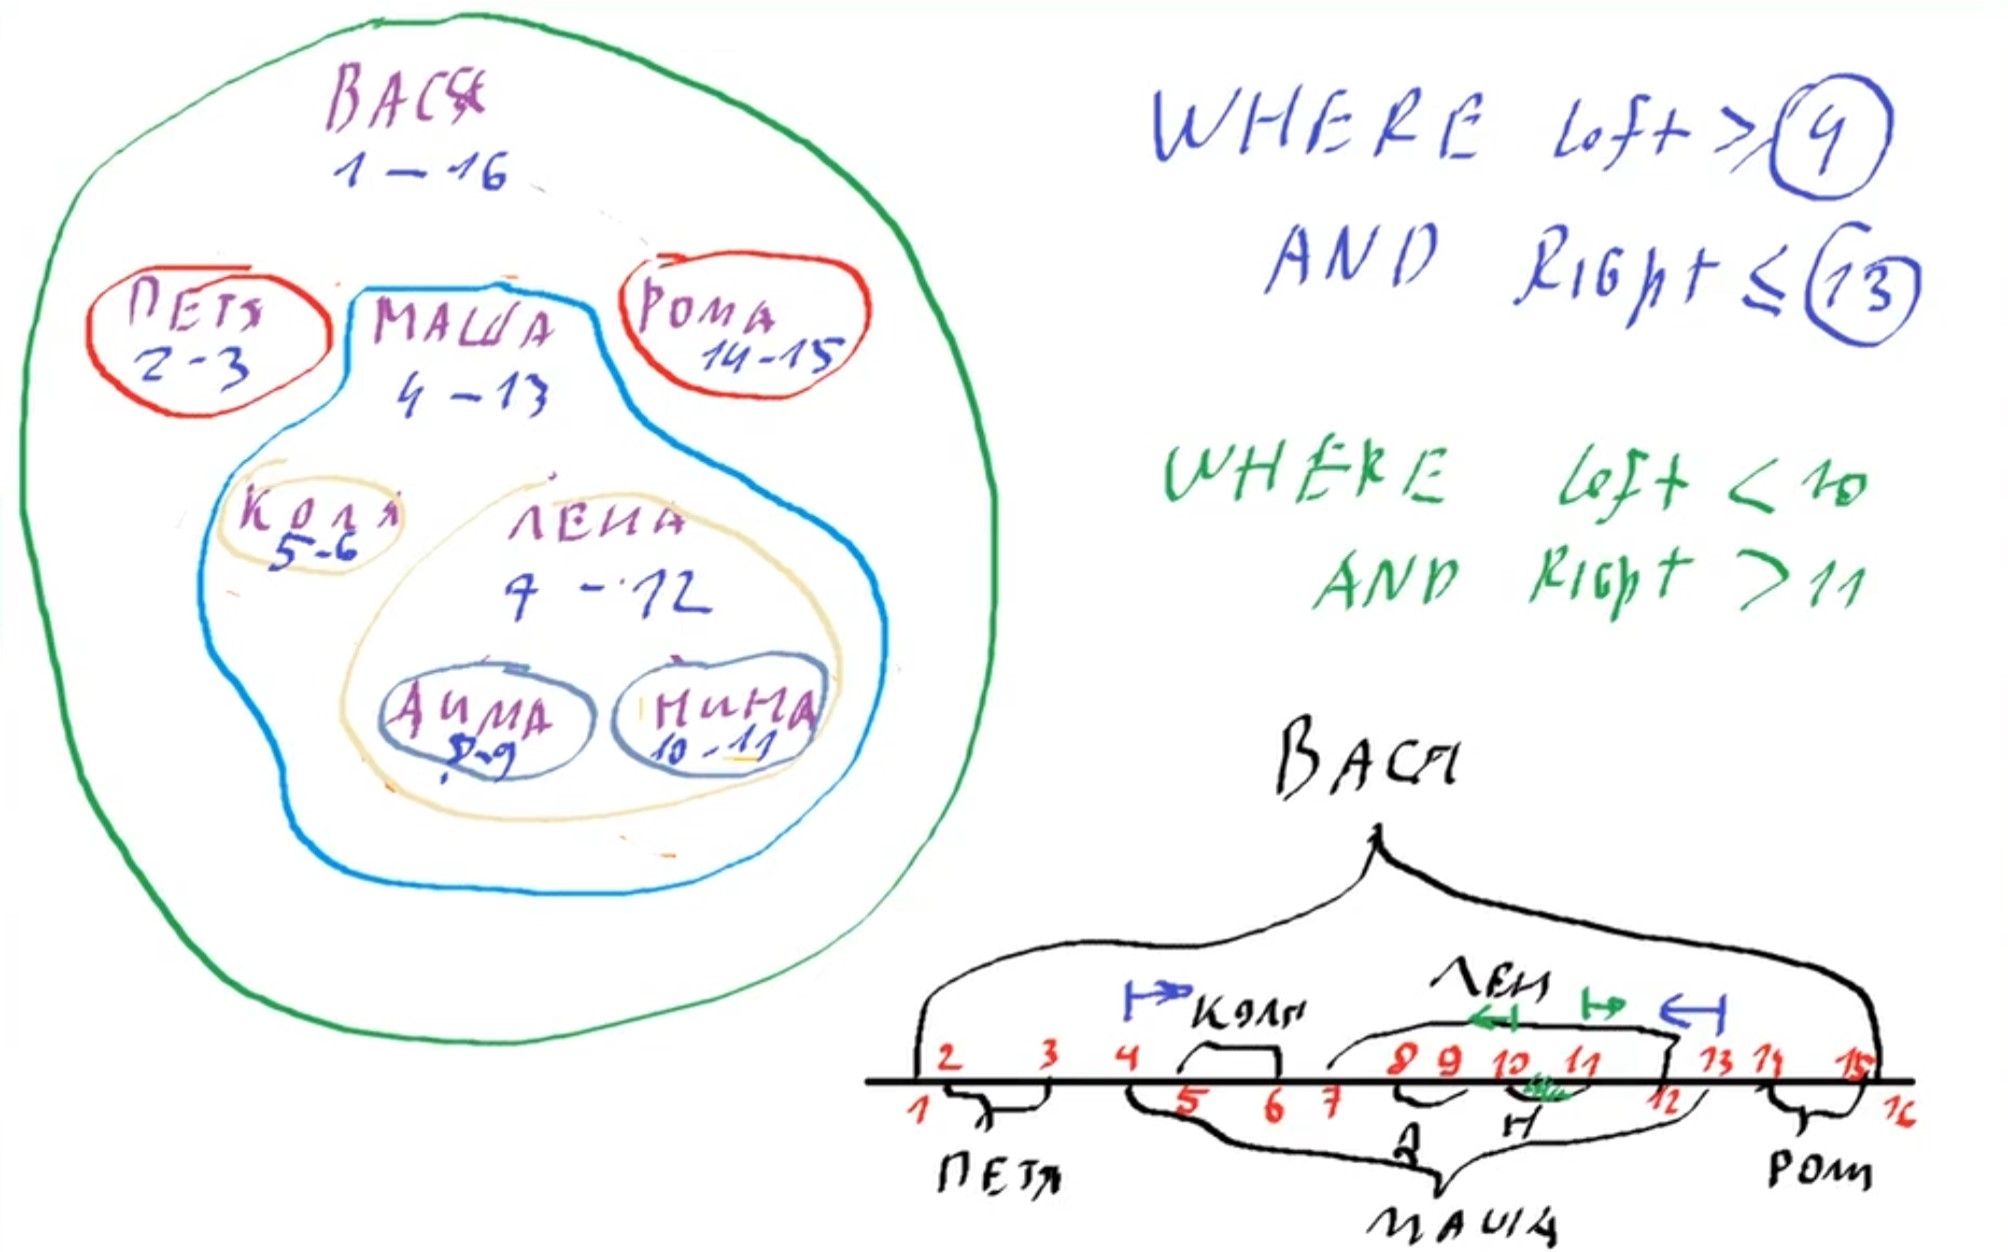 ВАСЯ
1 – 16
ПЕТЯ
2 - 3
МАША
4 – 13
РОМА
14-15
КОЛЯ
5-6
ЛЕНА
7 - 12
ДИМА
8-9
НИНА
10 - 11
WHERE left ≥ 4
AND Right ≤ 13
WHERE left < 10
AND Right > 11
ВАСЯ
ЛЕН
КОЛЯ
2 3 4 8 9 10 11 13 14 15
1 5 6 7 12 16
Д Н
ПЕТЯ
РОМ
МАША